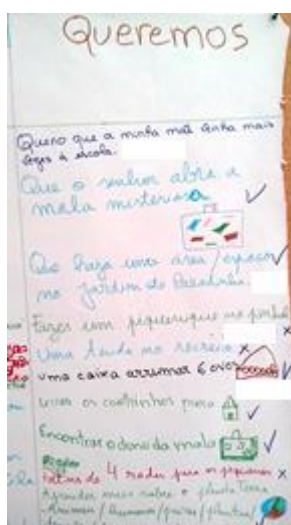 Queremos
Quero que a minha mãe venha mais
vezes à escola.
Que o senhor abra a
mala misteriosa
Que haja uma área/espaço
no jardim do
Fazer um piquenique no pinhal
Uma tenda no recreio x
uma caixa arrumar 6 ovos
os coelhinhos para
Encontrar o dono da mala
de 4 rodas para os pequenos x
Aprender mais sobre o planeta Terra
Animais/Humanos/ /plantas/